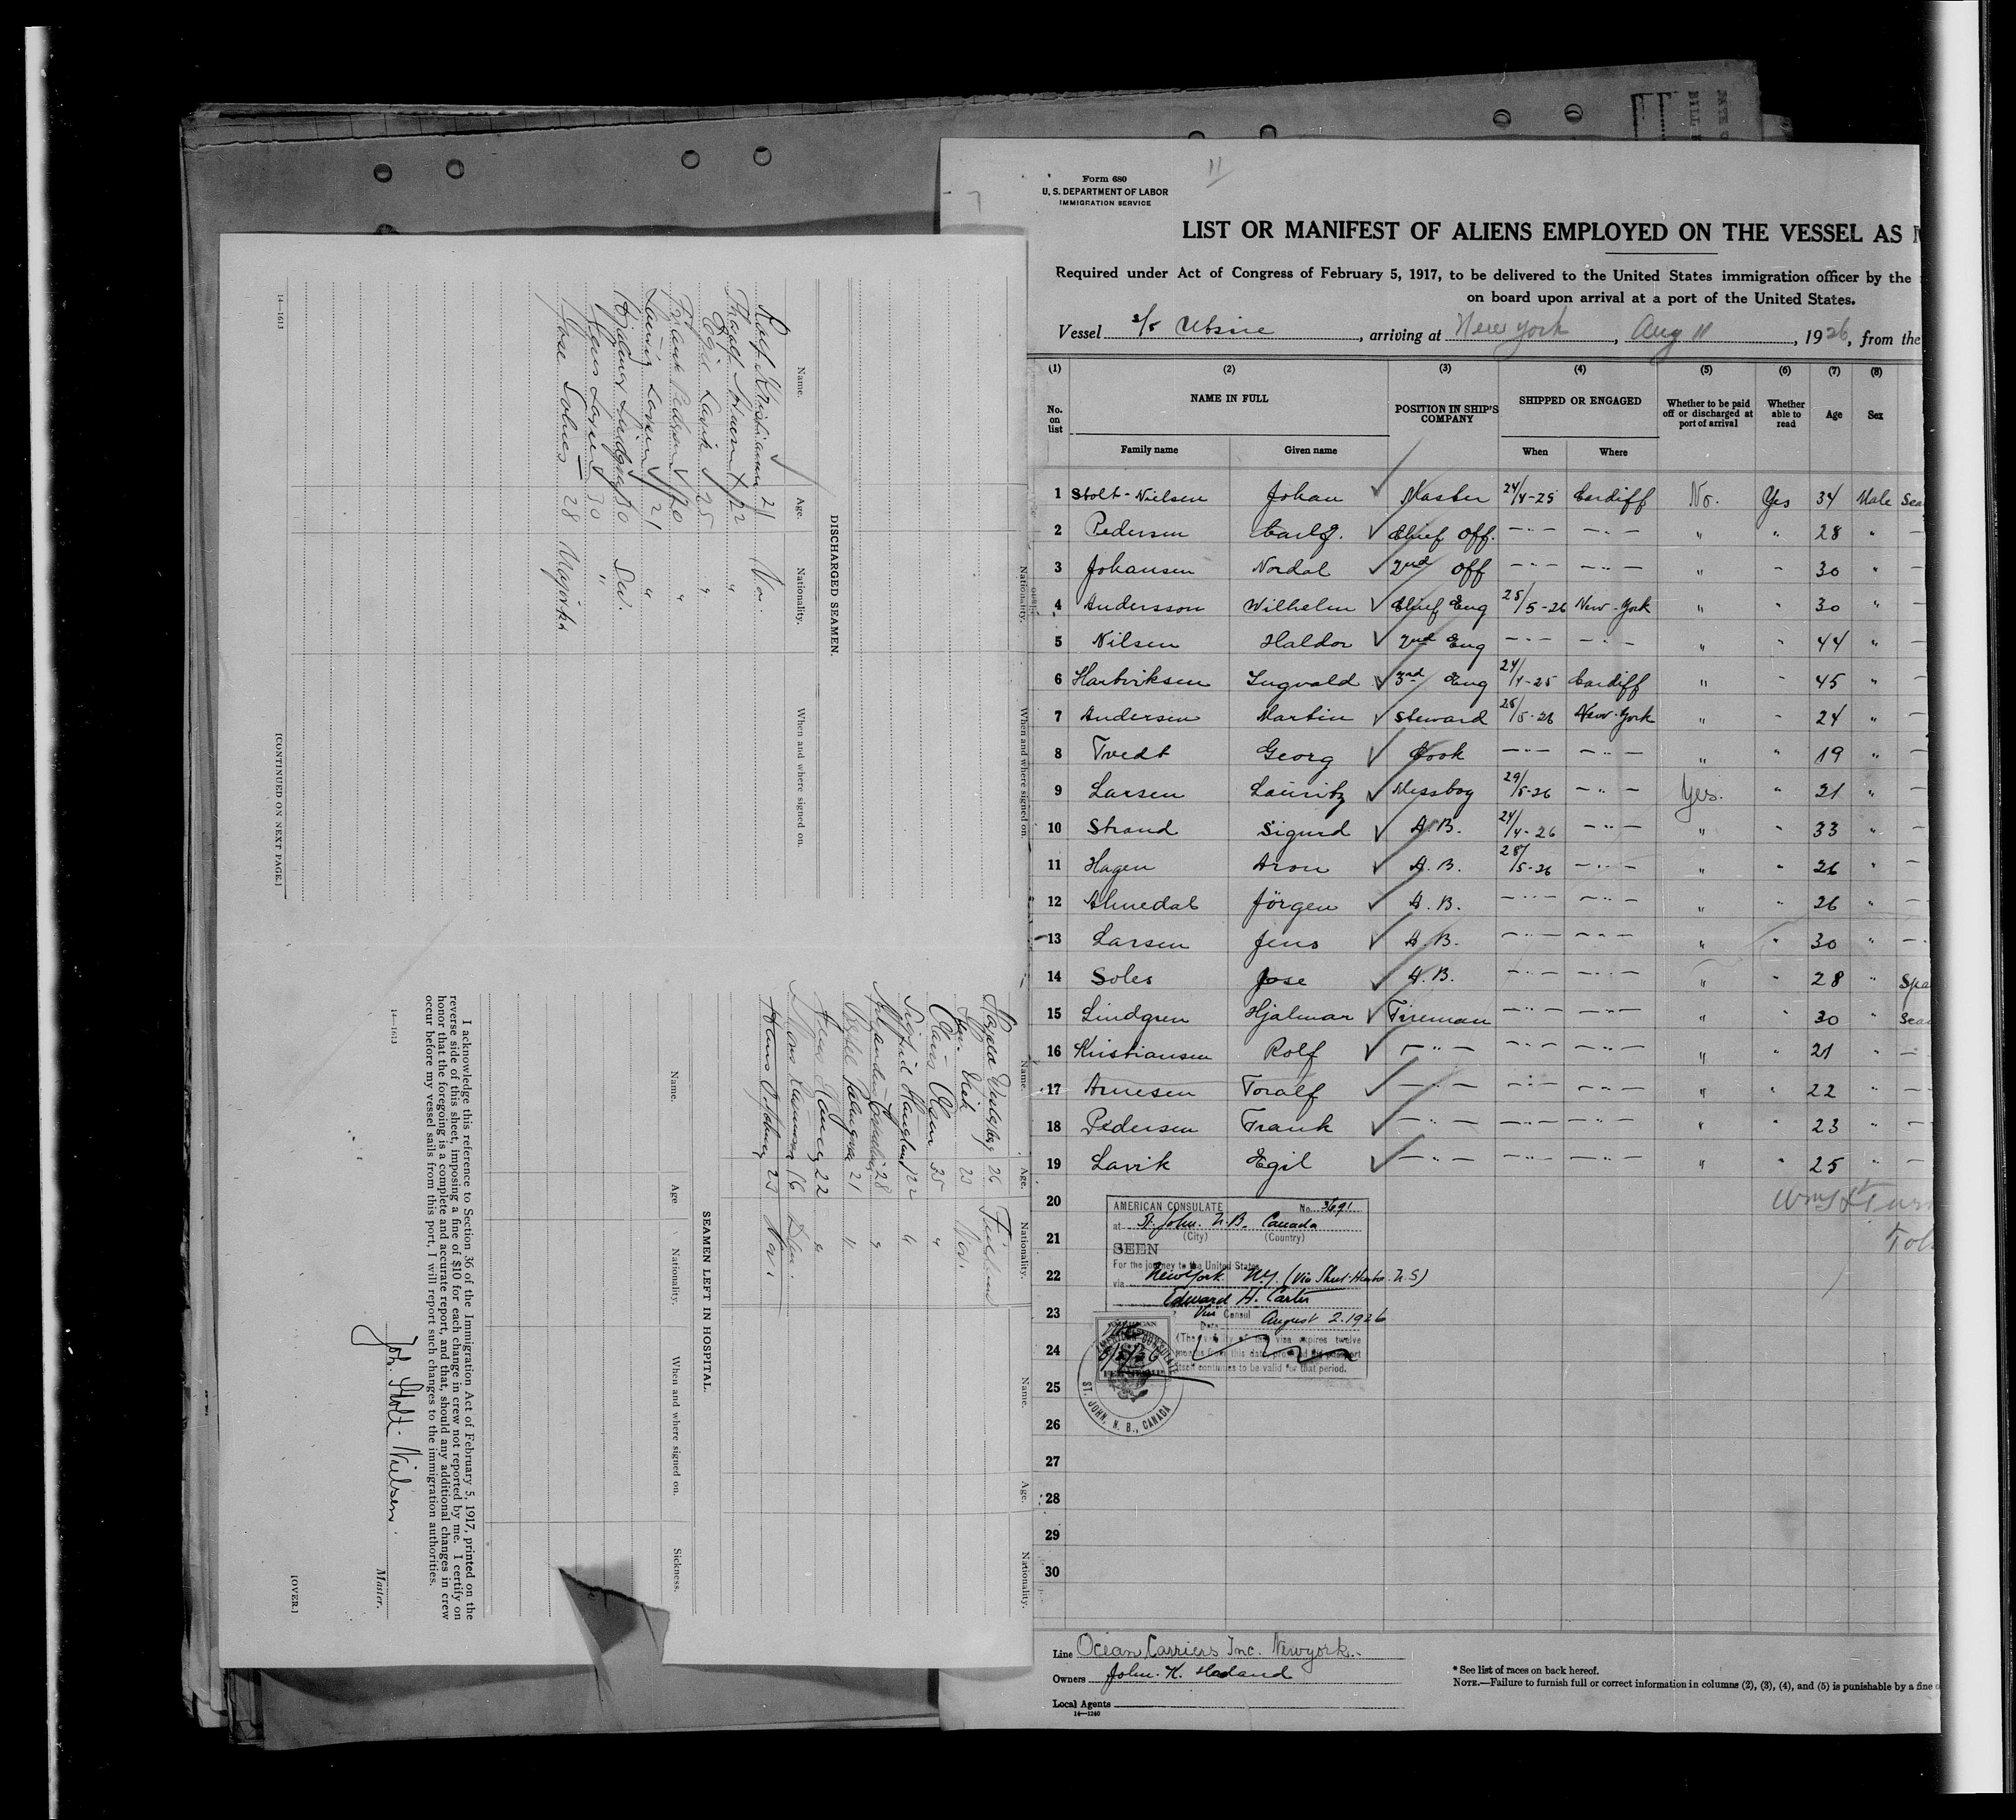 11
Form 680
U. S. DEPARTMENT OF LABOR
IMMIGRATION SERVICE
LIST OR MANIFEST OF ALIENS EMPLOYED ON THE VESSEL AS
Required under Act of Congress of February 5, 1917, to be delivered to the United States immigration officer by the
on board upon arrival at a port of the United States.
Vessel s/s Ubsire, arriving at New York, Aug 11, 1926, from the
(1) (2) (3) (4) (5) (6) (7) (8)
No. on list NAME IN FULL POSITION IN SHIP'S COMPANY SHIPPED OR ENGAGED Whether to be paid off or discharged at port of arrival Whether able to read Age Sex
Family name Given name When Where
1 Stolt-Nielsen Johan Master 24/4-25 Cardiff No. Yes 34 Male Sca
2 Pedersen Chief Off. — " — — " — " " 28 " —
3 Johansen Nordal 2nd Off — " — — " — " " 30 " —
4 Andersson Wilhelm Chief Eng 25/5-26 New-York " " 30 " —
5 Nilsen Haldor 2nd Eng — " — — " — " " 44 " —
6 Hartviksen Ingvald 3rd Eng 24/4-25 Cardiff " " 45 " —
7 Andersen Martin Steward 25/5-26 New-York " " 24 " —
8 Tvedt Georg Cook — " — — " — " " 19 " —
9 Larsen Lauritz Messboy 29/5-26 — " — Yes. " 21 " —
10 Strand Sigurd A.B. 24/4-26 — " — " " 33 " —
11 Hagen Aron A.B. 28/5-26 — " — " " 26 " —
12 Almedal Jörgen A.B. — " — — " — " " 26 " —
13 Larsen Jens A.B. — " — — " — " " 30 " —
14 Soles Jose A.B. — " — — " — " " 28 " Spa
15 Lindgren Hjalmar Fireman — " — — " — " " 30 " Sca
16 Kristiansen Rolf — " — — " — — " — " " 21 " —
17 Arnesen Toralf — " — — " — — " — " " 22 " —
18 Pedersen Frank — " — — " — — " — " " 23 " —
19 Lavik Egil — " — — " — — " — " " 25 " —
20
21
22
23
24
25
26
27
28
29
30
AMERICAN CONSULATE No. 3691
at St. John. N.B. Canada
(City) (Country)
SEEN
For the journey to the United States
via New York N.Y. (via Sheet Harbor N.S)
Edward H. Carter
Vice Consul
Date August 2. 1926
(The validity of this visa expires twelve
months from this date provided the passport
itself continues to be valid for that period.
AMERICAN CONSULATE
ST. JOHN, N. B., CANADA
Line Ocean Carriers Inc. New york.
Owners John. K. Haaland
Local Agents
14—1240
* See list of races on back hereof.
NOTE.—Failure to furnish full or correct information in columns (2), (3), (4), and (5) is punishable by a fine
Nationality. When and where signed on.
DISCHARGED SEAMEN.
Name. Age. Nationality. When and where signed on.
Rolf Kristiansen 21 No.
Thoralf Arnesen 22 "
Egil Lavik 25 "
Frank Pedersen 20 "
Lauritz Larsen 21 "
Hjalmar Lindgren 30 Sw.
Jens Larsen 30 "
Jose Soles 28
14—1613
[CONTINUED ON NEXT PAGE.]
Name. Age. Nationality. Name. Age. Nationality.
Harald 26
23 Nor.
Claus Olsen 35 "
Sigfrid Haugland 22 "
28 "
21 "
22 "
16
23 Nor.
SEAMEN LEFT IN HOSPITAL.
Name. Age Nationality. When and where signed on. Sickness.
I acknowledge this reference to Section 36 of the Immigration Act of February 5, 1917, printed on the
reverse side of this sheet, imposing a fine of $10 for each change in crew not reported by me. I certify on
honor that the foregoing is a complete and accurate report, and that, should any additional changes in crew
occur before my vessel sails from this port, I will report such changes to the immigration authorities.
Joh. Stolt-Nielsen
Master.
14—1613
[OVER.]